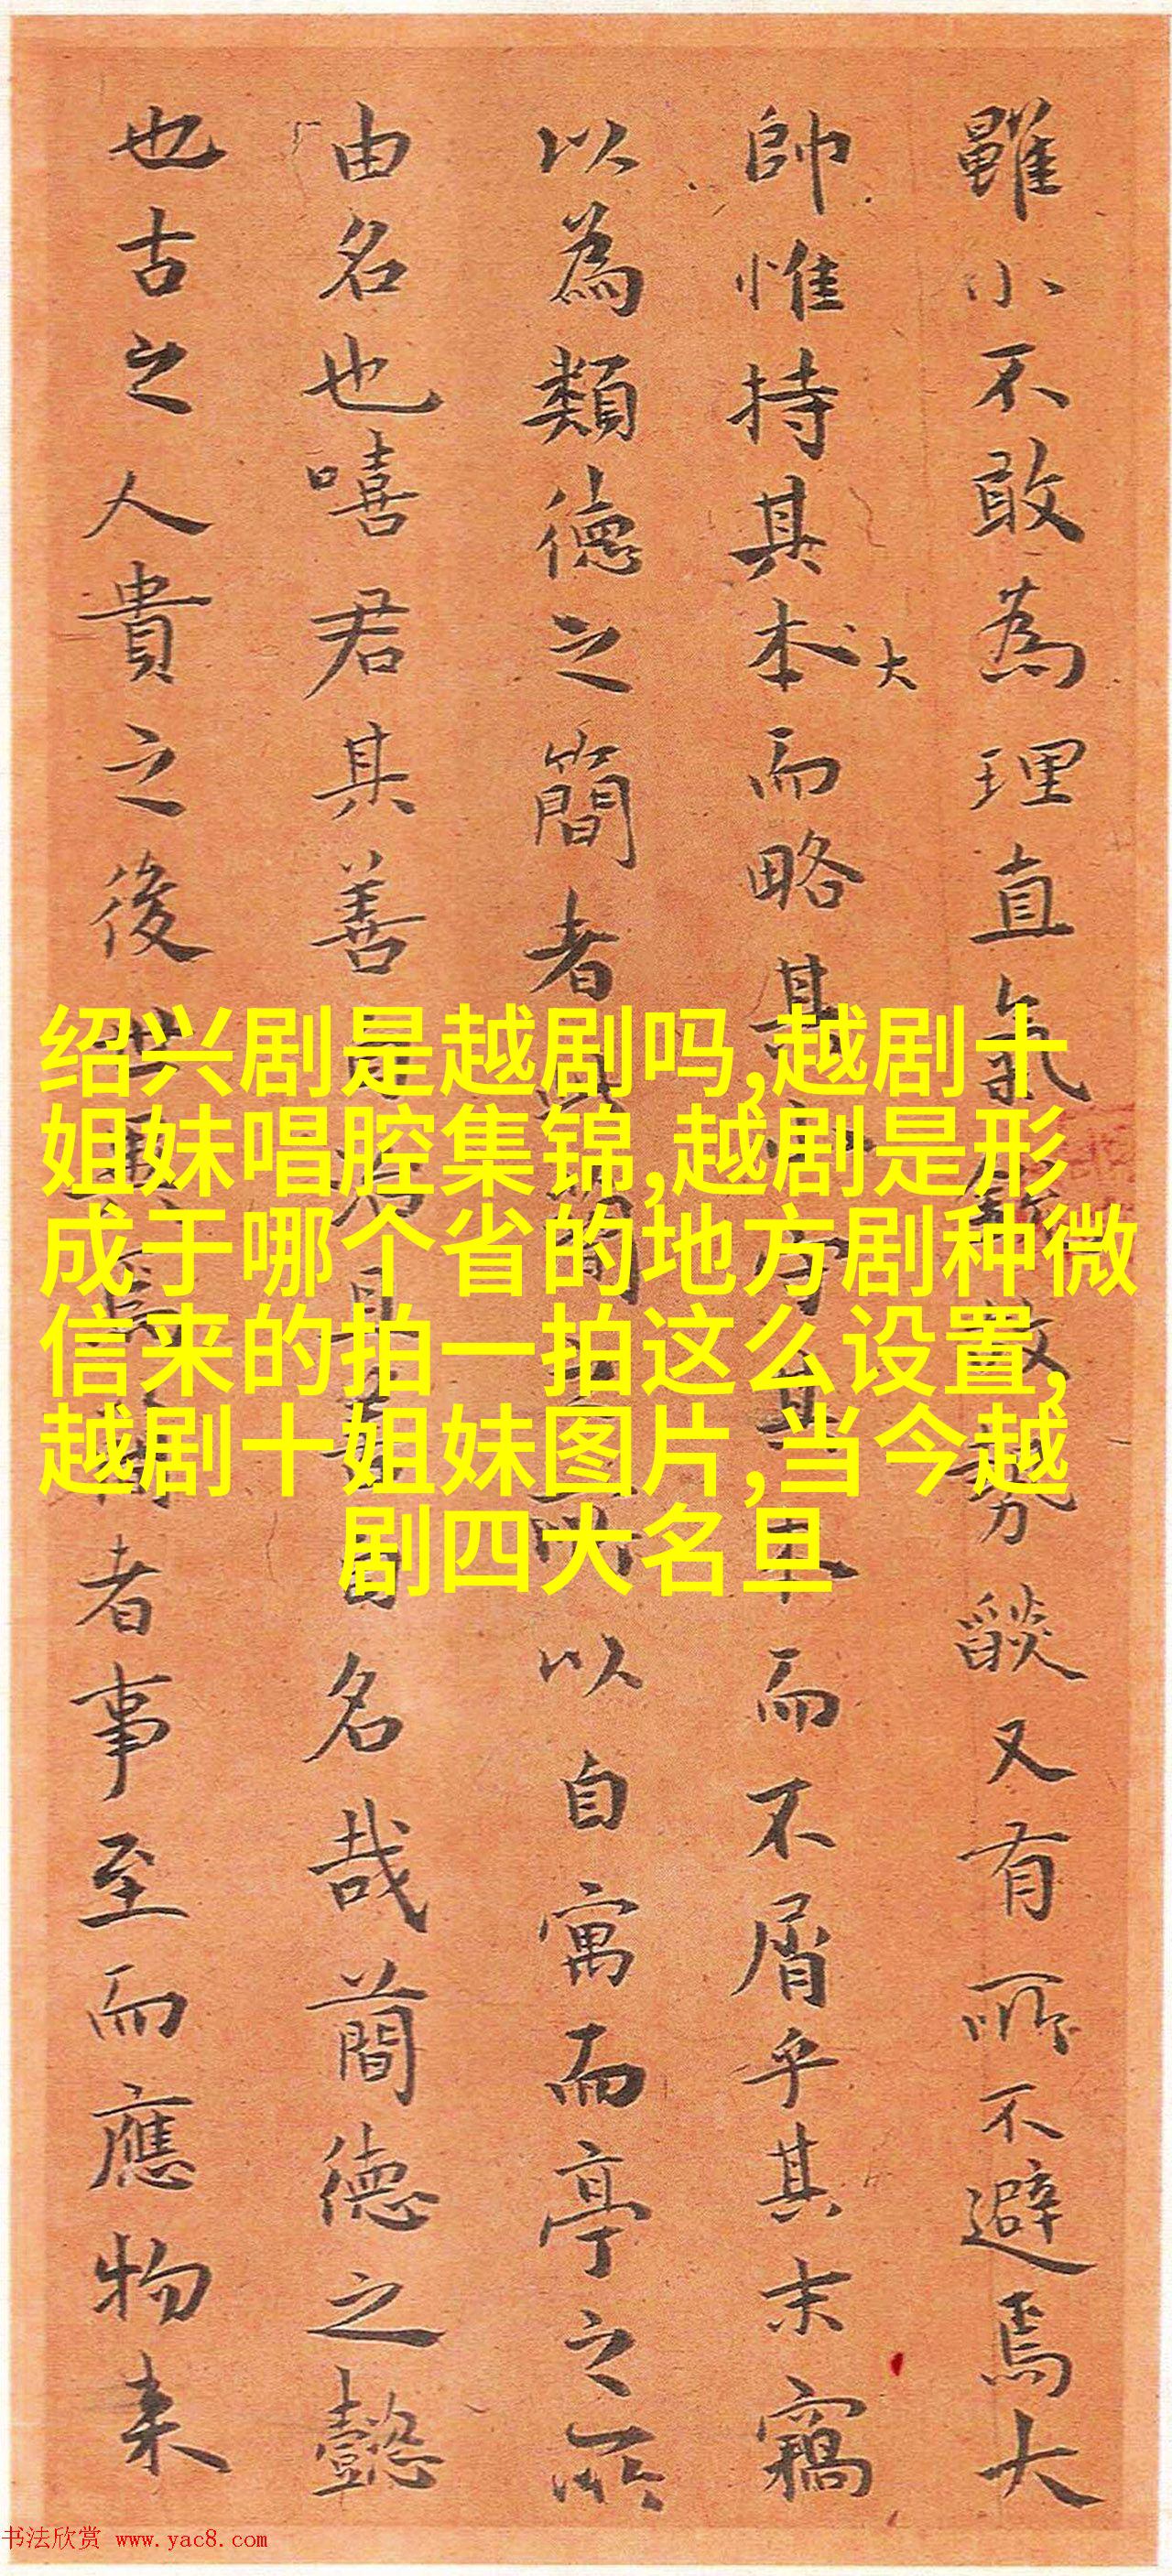 雖小不敢為理直氣
敢勢燄又有所不避焉大
帥惟持其本而略其
大
本而不屑乎其末竊
以為類德之簡者
以自寓而亭之所
由名也嘻君其善
名哉蕳德之懿
也古之人貴之後世
者事至而應物来
绍兴剧是越剧吗,越剧十
姐妹唱腔集锦,越剧是形
成于哪个省的地方剧种微
信来的拍一拍这么设置,
越剧十姐妹图片,当今越
剧四大名旦
书法欣赏 www.yac8.com